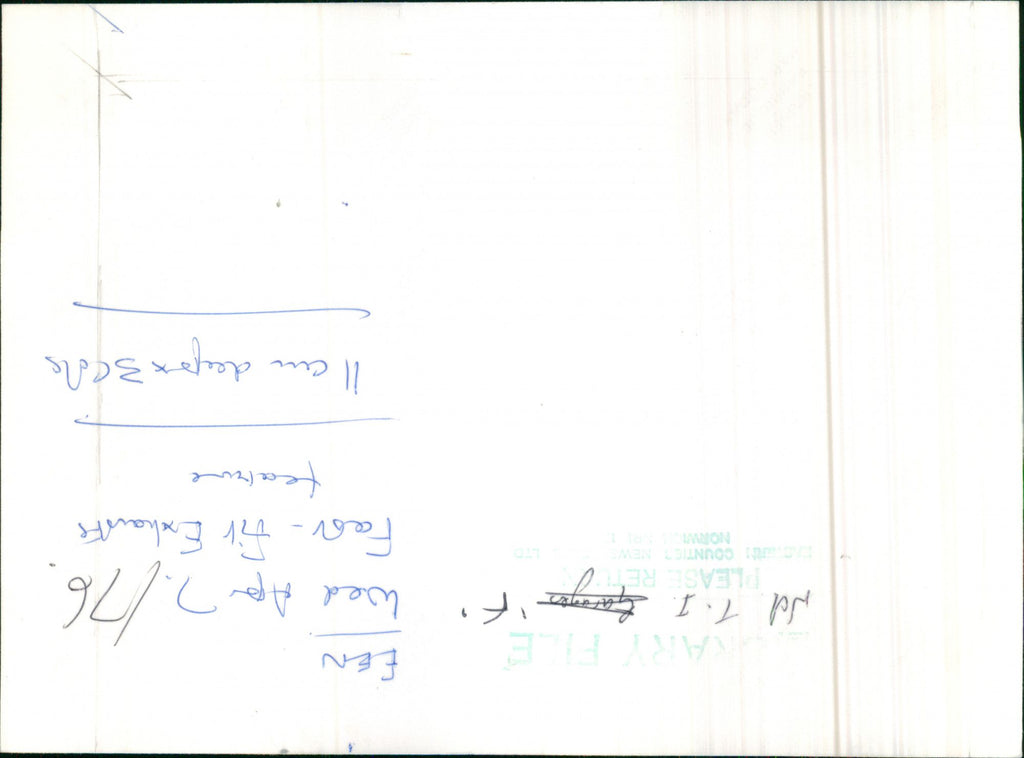 EEN
Wed Apr 7. /76.
Fast-fit Exhausts
feature
11 cm deep x 3 Cols
LIBRARY FILE
T. I. Garages 'F'.
PLEASE RETURN
EASTERN COUNTIES NEWSPAPERS LTD
NORWICH NR1 1